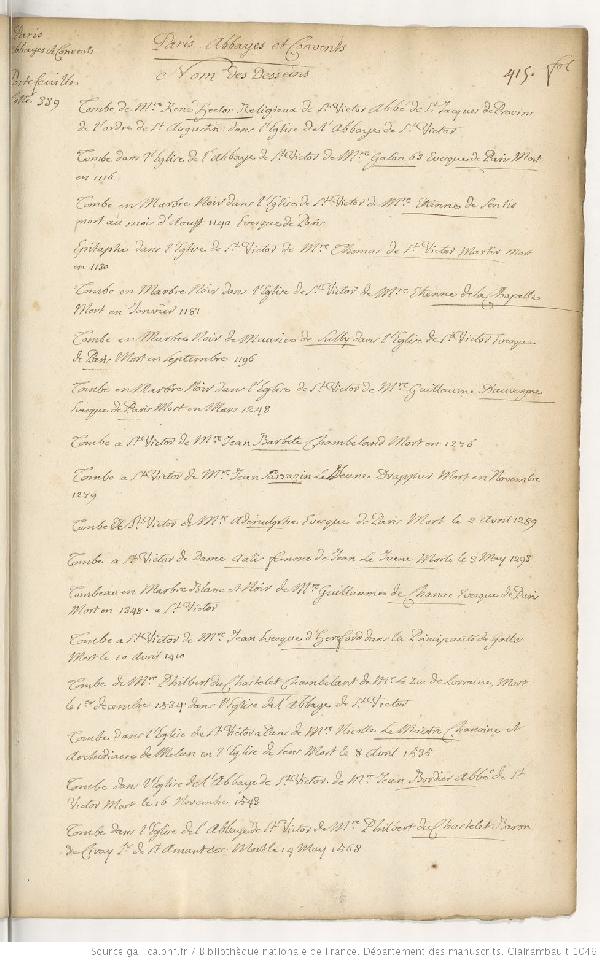 Paris
Abbayes et Convents
Portefeuille
cotté 339
Paris Abbayes et Convents
Nom des Desseins
415. fol
Tombe de Mre. René Hector Religieux de St. Victor Abbé de St. Jacques de Provins
de l'ordre de St. Augustin dans l'Eglise de l'Abbaye de St. Victor
Tombe dans l'Eglise de l'Abbaye de St. Victor de Mre. Galan 63 Evesque de Paris Mort
en 1116
Tombe en Marbre Noir dans l'Eglise de St. Victor de Mre. Etienne de Senlis
mort au mois d'Aoust 1140 Evesque de Paris
Epitaphe dans l'Eglise de St. Victor de Mre. Thomas de St. Victor Martir Mort
en 1130
Tombe en Marbre Noir dans l'Eglise de St. Victor de Mre. Etienne de la Chapelle
Mort en Janvier 1181
Tombe en Marbre Noir de Maurice de Sully dans l'Eglise de St. Victor Evesque
de Paris Mort en septembre 1196
Tombe en Marbre Noir dans l'Eglise de St. Victor de Mre. Guillaume Dauvergne
Evesque de Paris Mort en Mars 1248
Tombe a St. Victor de Mre. Jean Barbite Chambeland Mort en 1276
Tombe a St. Victor de Mre. Jean Sarrazin Le Jeune Drappier Mort en Novembre
1279
Tombe de St. Victor de Mre. Adenulphe Evesque de Paris Mort le 2 Avril 1289
Tombe a St. Victor de Dame Aalis femme de Jean Le Morte le 3 May 1293
Tombeau en Marbre Blanc et Noir de Mre. Guillaume de Chanac Evesque de Paris
Mort en 1348. a St. Victor
Tombe a St. Victor de Mre. Jean Evesque d'Herford dans la Principauté de Galles
Mort le 10 Avril 1410
Tombe de Mre. Philbert du Chastelet Chambelant de Mr. le Duc de Lorraine, Mort
le 1er. decembre 1534 dans l'Eglise de l'Abbaye de St. Victor
Tombe dans l'Eglise de St. Victor a Paris de Mre. Nicolle Chanoine et
Archidiacre de Melun en l'Eglise de Sens Mort le 8 Avril 1535
Tombe dans l'Eglise de l'Abbaye de St. Victor de Mre. Jean Bordier Abbé de St.
Victor Mort le 16 Novembre 1543
Tombe dans l'Eglise de l'Abbaye de St. Victor de Mre. Philbert du Chastelet Baron
de Cirey Sr. de St. Amant &c. Mort le 14 May 1568
Source gallica.bnf.fr / Bibliothèque nationale de France. Département des manuscrits. Clairambault 1046